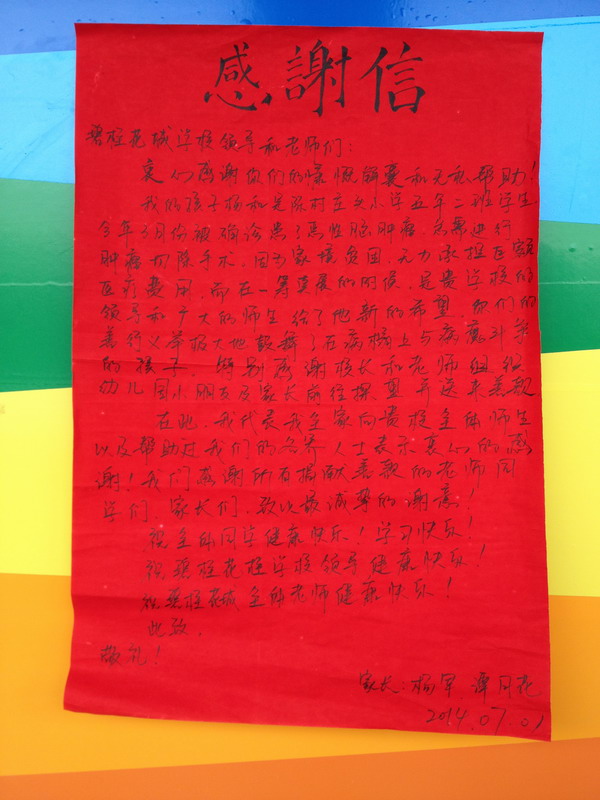 感謝信
碧桂花城学校领导和老师们：
衷心感谢你们的慷慨解囊和无私帮助！
我的孩子杨和是陈村庄头小学五年二班学生
今年3月份被确诊患了恶性脑肿瘤，急需进行
肿瘤切除手术，因为家境贫困，无力承担巨额
医疗费用，而在一筹莫展的时候，是贵学校的
领导和广大的师生给了他新的希望，你们的
善行义举极大地鼓舞了在病榻上与病魔斗争
的孩子，特别感谢校长和老师组织
幼儿园小朋友及家长前往探望并送来善款
在此，我代表我全家向贵校全体师生
以及帮助过我们的各界人士表示衷心的感
谢！我们感谢所有捐献善款的老师同
学们、家长们，致以最诚挚的谢意！
祝全体同学健康快乐！学习快乐！
祝碧桂花城学校领导健康快乐！
祝碧桂花城全体老师健康快乐！
此致，
敬礼！
家长：杨军 谭月花
2014.07.01